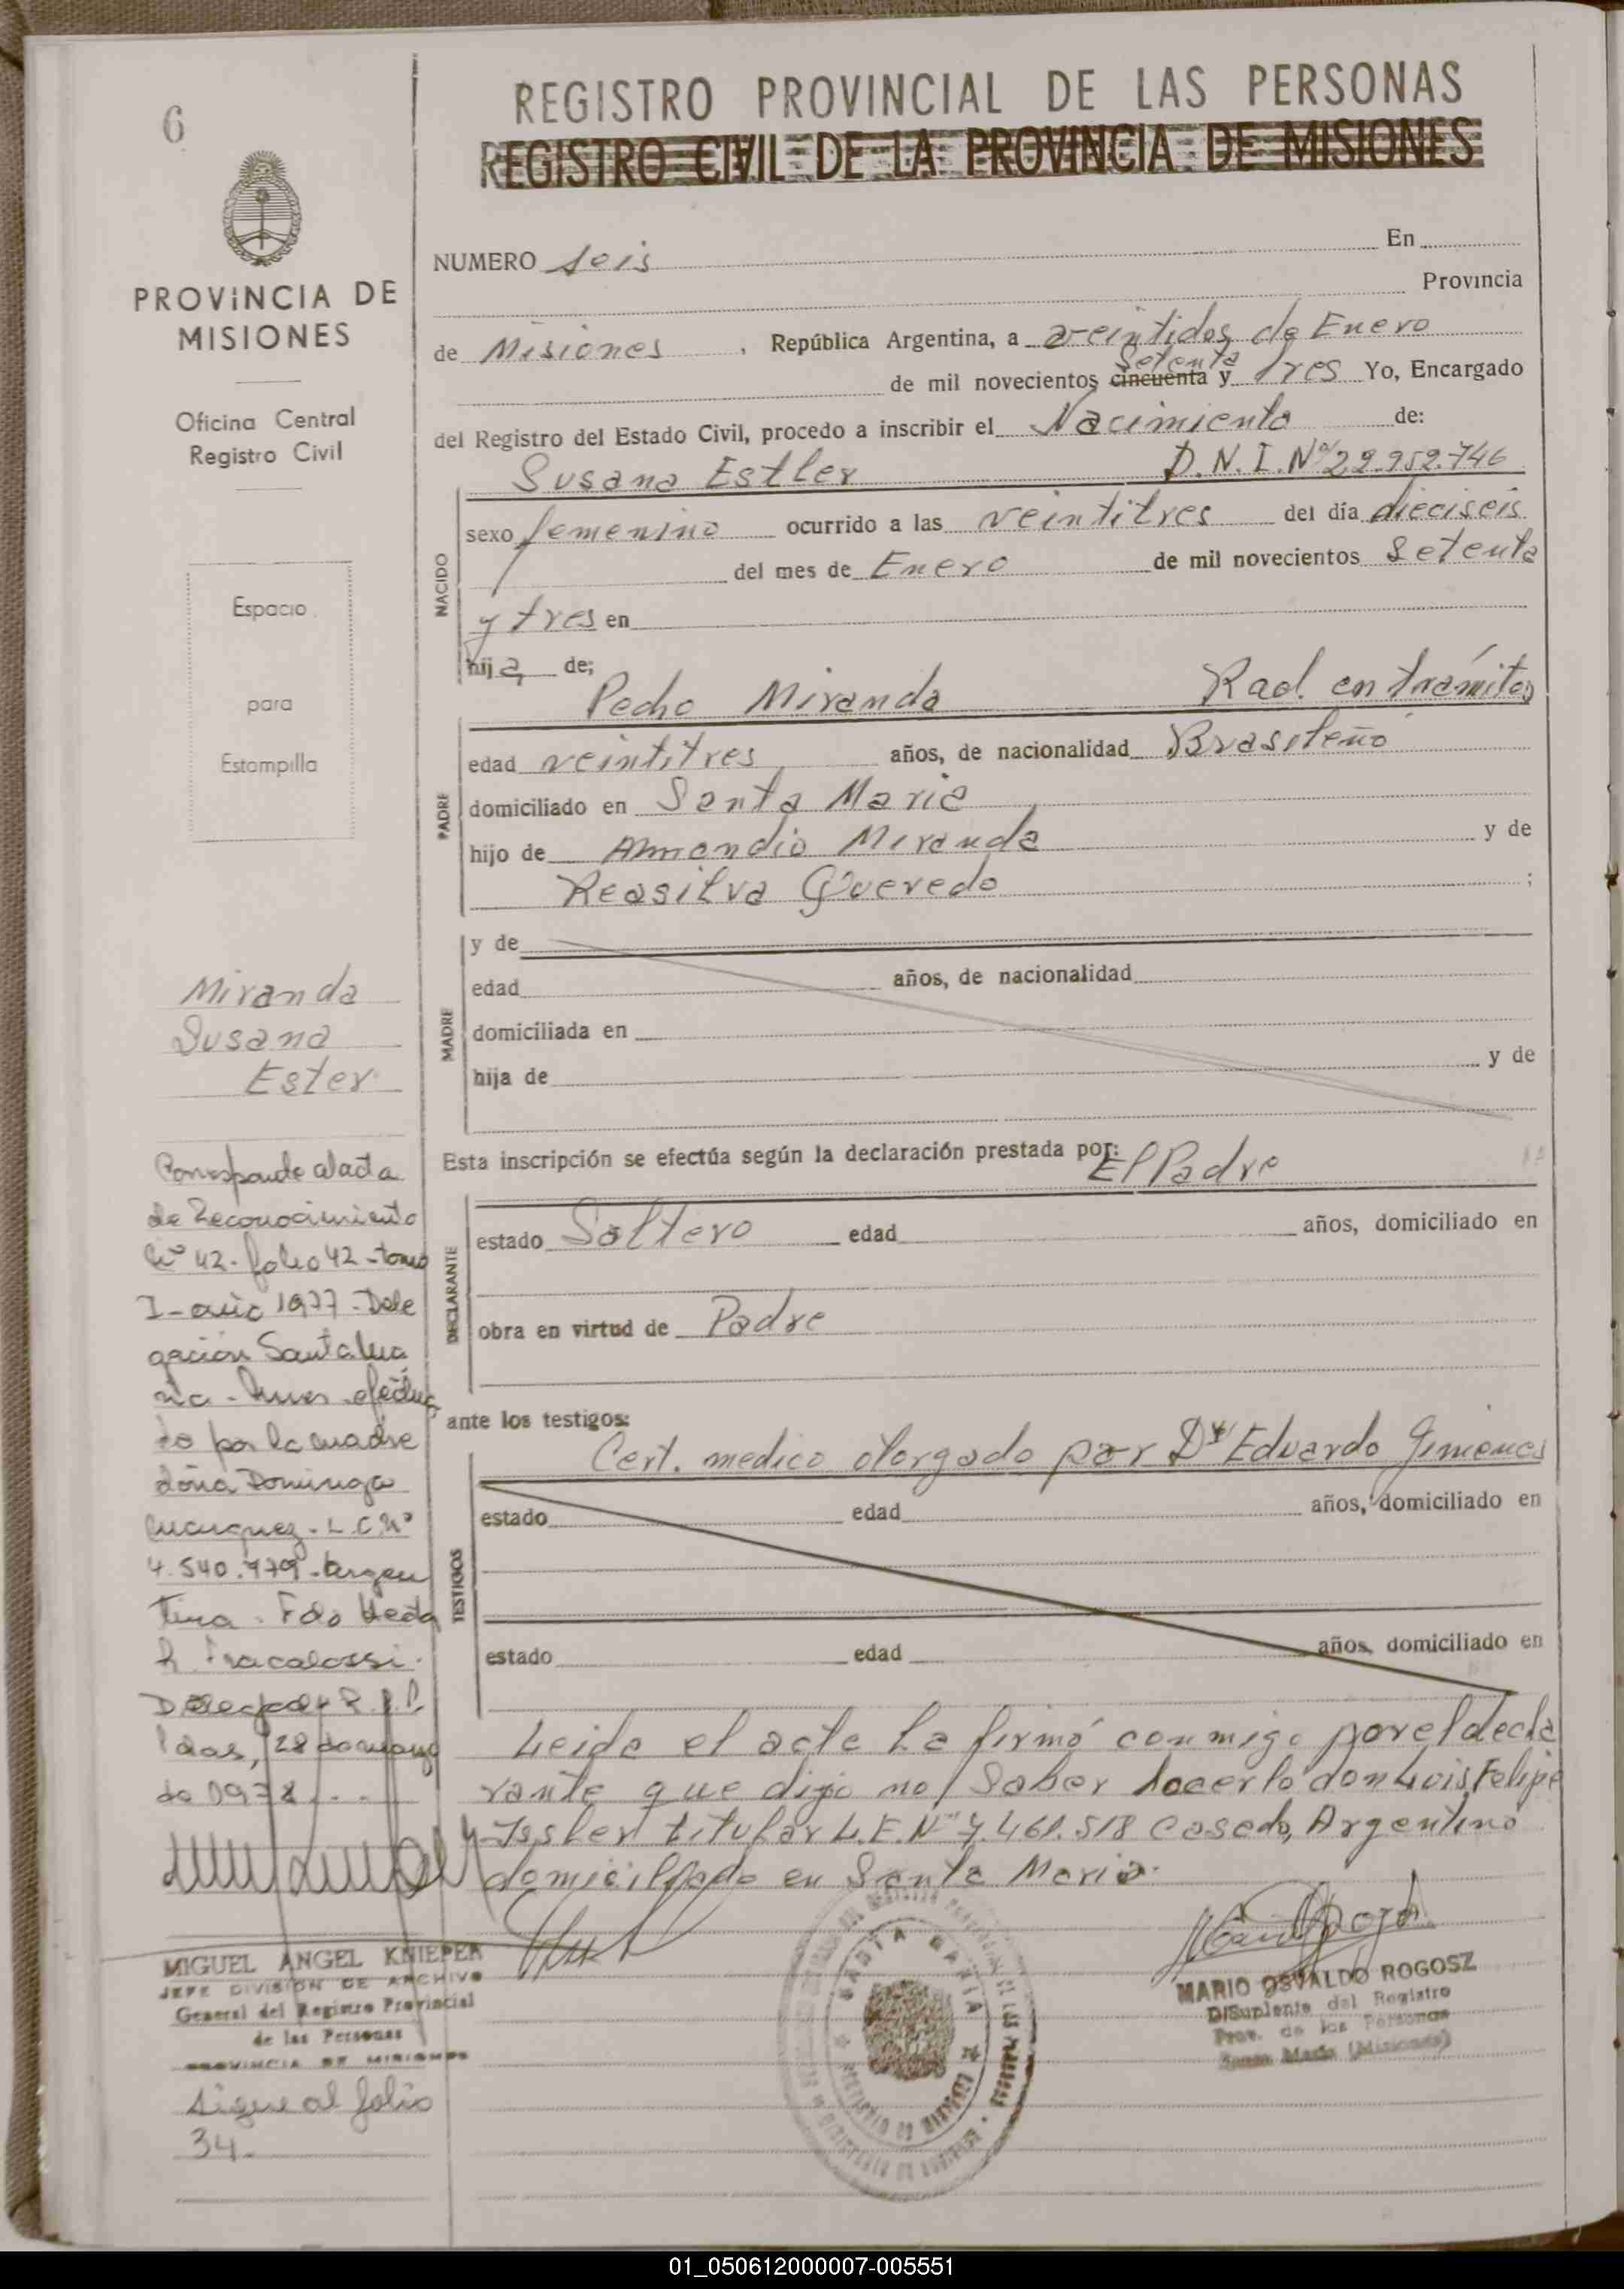 6
PROVINCIA DE
MISIONES
Oficina Central
Registro Civil
Espacio
para
Estampilla
Miranda
Susana
Ester
Corresponde al acta
de Reconocimiento
Nº 42 - folio 42 - tomo
I - año 1977 - Dele
gación Santa Ma
ría - efectua
do por la madre
doña Dominga
L.C.Nº
4.540.979 - Argen
tina - Fdo
h. Fracalossi.
R.P.P.
Pdas, 28 de mayo
de 1978...
MIGUEL ANGEL KNIEPER
JEFE DIVISION DE ARCHIVO
General del Registro Provincial
de las Personas
PROVINCIA DE MISIONES
Sigue al folio
34.
REGISTRO PROVINCIAL DE LAS PERSONAS
REGISTRO CIVIL DE LA PROVINCIA DE MISIONES
NUMERO seis En
Provincia
de Misiones, República Argentina, a veintidos de Enero
setenta
de mil novecientos cincuenta y tres Yo, Encargado
del Registro del Estado Civil, procedo a inscribir el Nacimiento de:
Susana Esther D.N.I.Nº 22.952.746
NACIDO
sexo femenino ocurrido a las veintitres del día dieciseis
del mes de Enero de mil novecientos setenta
y tres en
hija de;
Pedro Miranda Rad. en trámites
PADRE
edad veintitres años, de nacionalidad Brasileño
domiciliado en Santa Maria
hijo de Amandio Miranda y de
Reasilva Quevedo ;
MADRE
y de
edad años, de nacionalidad
domiciliada en
hija de y de
Esta inscripción se efectúa según la declaración prestada por: El Padre
DECLARANTE
estado Soltero edad años, domiciliado en
obra en virtud de Padre
ante los testigos:
Cert. medico otorgado por Dr Eduardo Gimenes
TESTIGOS
estado edad años, domiciliado en
estado edad años, domiciliado en
Leida el acta la firmó conmigo por el decla
rante que dijo no saber hacerlo don Luis Felipe
titular L.E.Nº 7.461.518 casado, Argentino
domiciliado en Santa Maria.
SANTA MARIA
MARIO OSVALDO ROGOSZ
D/Suplente del Registro
Prov. de las Personas
Santa María (Misiones)
01_050612000007-005551